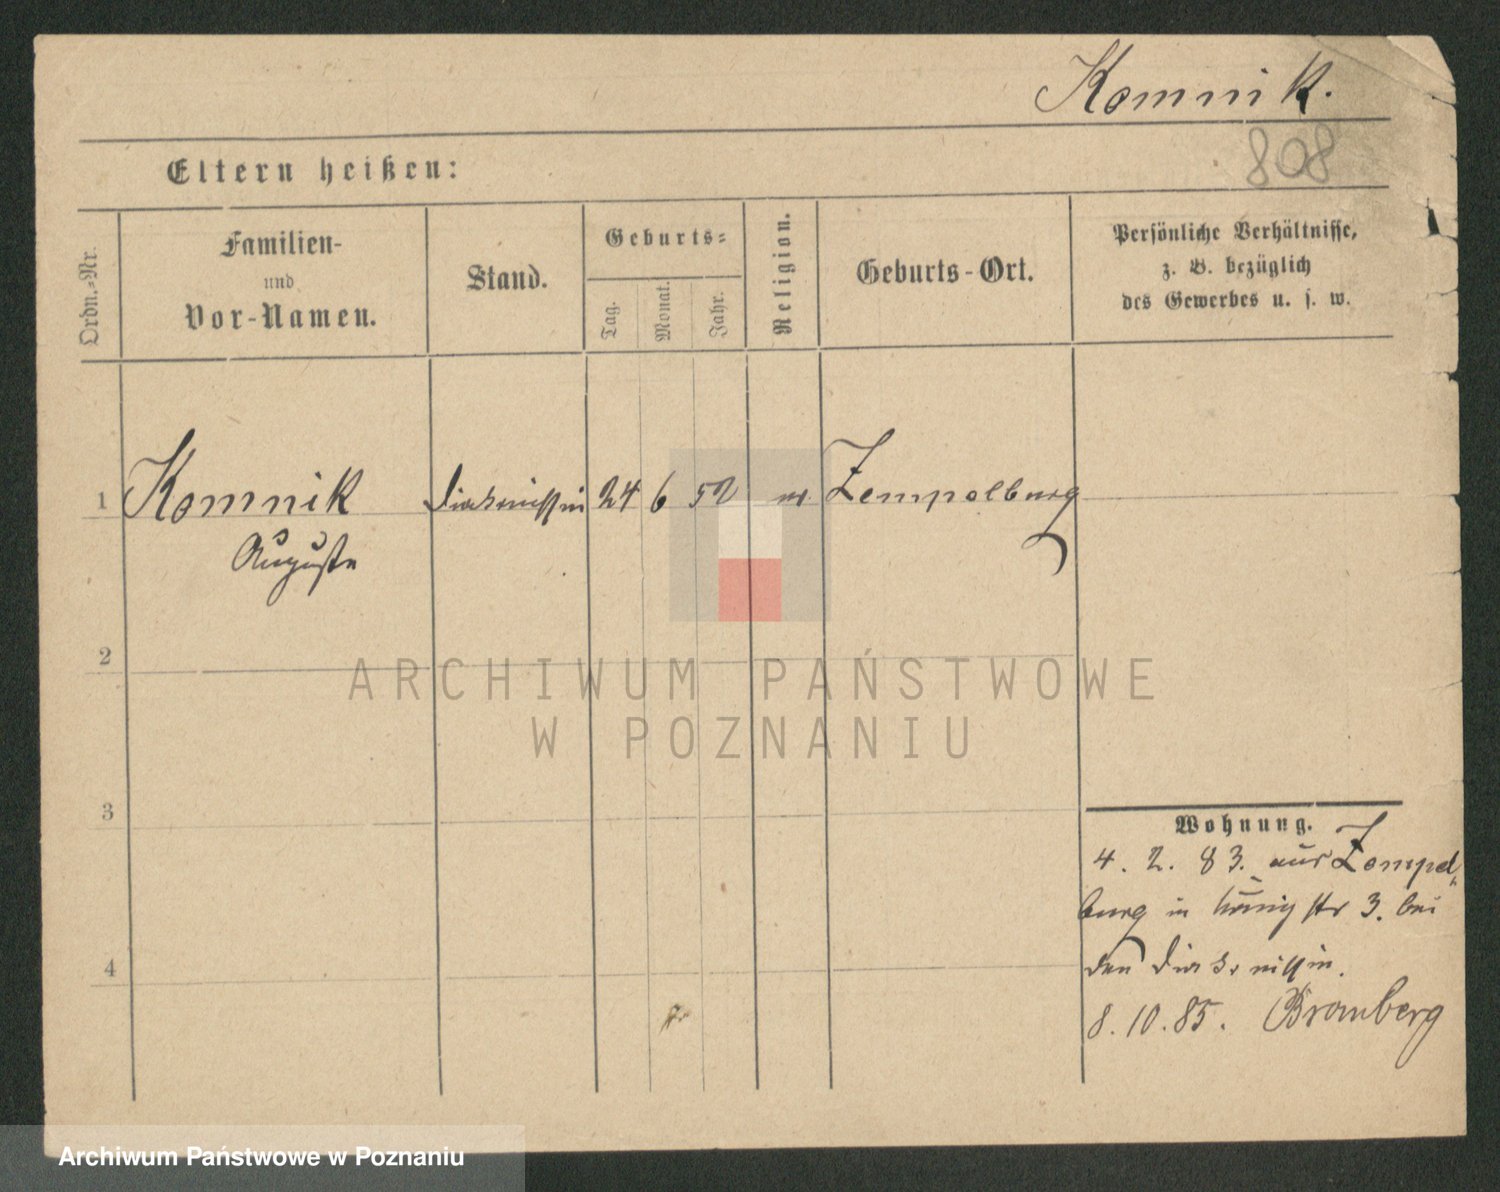 Komnik.
808
Eltern heißen:
Ordn.-Nr.
Familien-
und
Vor-Namen.
Stand.
Geburts-
Tag.
Monat.
Jahr.
Religion.
Geburts-Ort.
Persönliche Verhältnisse,
z. B. bezüglich
des Gewerbes u. s. w.
1 Komnik Diakonissin 24 6 52 Zempelburg
Auguste
2
3
4
Wohnung.
4. 2. 83. aus Zempel-
burg in Königstr 3. bei
den Diakonissin.
8. 10. 85. Bromberg
ARCHIWUM PAŃSTWOWE
W POZNANIU
Archiwum Państwowe w Poznaniu